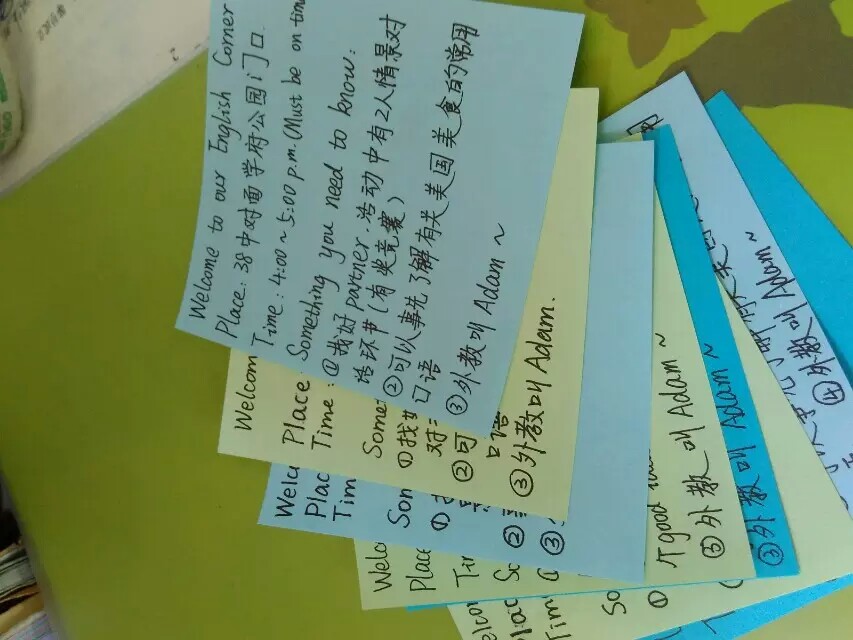 Welcome to our English Corner
Place: 38中对面学府公园门口
Time: 4:00~5:00 p.m.(Must be on time
Something you need to know:
①找好partner.活动中有2人情景对
话环节(有奖竞赛)
②可以事先了解有关美国美食的常用
口语
③外教叫Adam~
Welcom
Place
Time:
Some
①找
对
②可
口语
③外教叫Adam.
Welc
Plac
Tim
Som
①
②
③
Welc
Place
Tim
So
个good
③外教叫Adam~
③外教叫Adam~
elcon
lac
Time
So
①
④外教叫Adam~